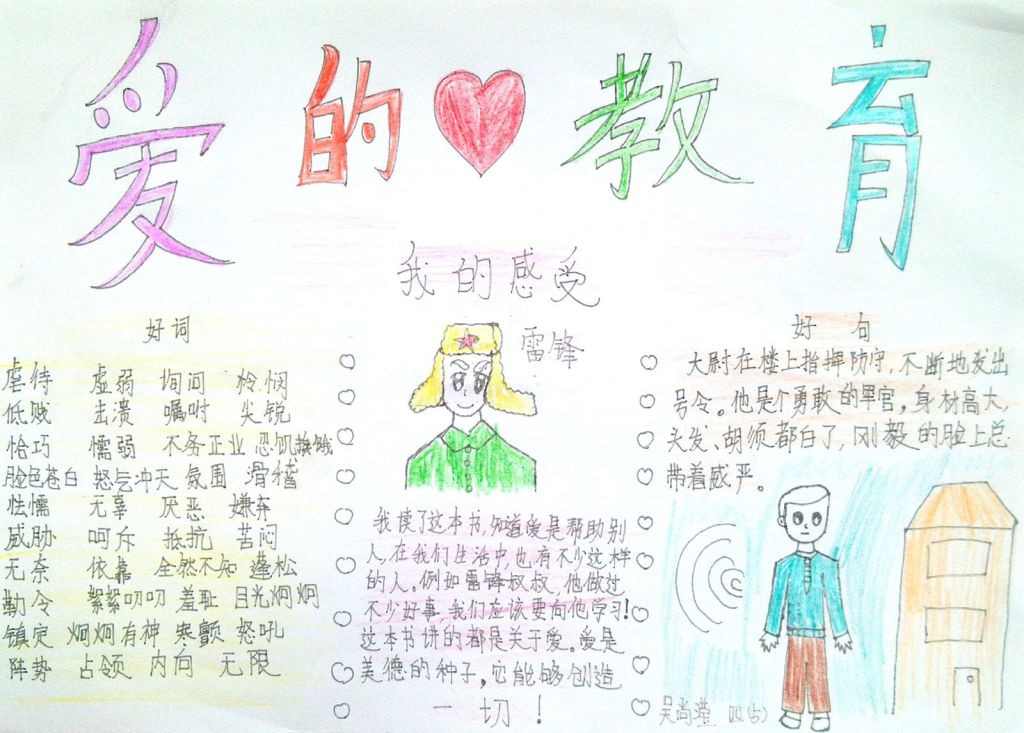 爱的教育
我的感受
好词
虐待 虚弱 询问 怜悯
低贱 击溃 嘱咐 尖锐
恰巧 懦弱 不务正业 忍饥挨饿
脸色苍白 怒气冲天 氛围 滑稽
怯懦 无辜 厌恶 嫌弃
威胁 呵斥 抵抗 苦闷
无奈 依靠 全然不知 蓬松
勒令 絮絮叨叨 羞耻 目光炯炯
镇定 炯炯有神 怒吼
阵势 占领 内向 无限
雷锋
我读了这本书,知道爱是帮助别
人,在我们生活中,也有不少这样
的人。例如雷锋叔叔,他做过
不少好事,我们应该要向他学习!
这本书讲的都是关于爱。爱是
美德的种子,它能够创造
一切!
好句
大尉在楼上指挥防守,不断地发出
号令。他是个勇敢的军官,身材高大,
头发、胡须都白了,刚毅的脸上总
带着威严。
吴尚滢 四(5)